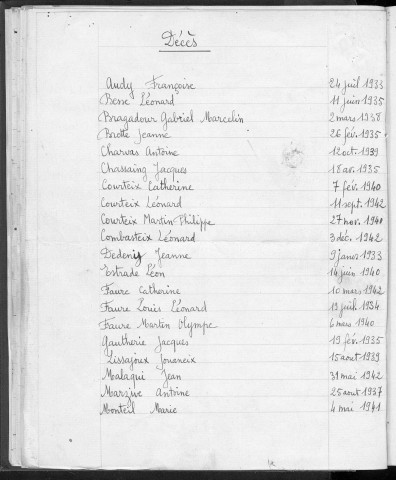 Décès
Audy Françoise 24 juil 1933
Besse Léonard 11 juin 1935
Bragadour Gabriel Marcelin 2 mars 1938
Brotte Jeanne 26 fév. 1935
Charvas Antoine 12 oct. 1939
Chassaing Jacques 18 av. 1935
Courteix Catherine 7 fév. 1940
Courteix Léonard 11 sept. 1942
Courteix Martin-Philippe 27 nov. 1940
Combasteix Léonard 3 déc. 1942
Jeanne 9 janv 1933
Estrade Léon 14 juin 1940
Faure Catherine 10 mars 1942
Faure Louis Léonard 19 juil 1934
Faure Marten Olympe 6 mars 1940
Gautherie Jacques 19 fév. 1935
Lissajoux 15 aout 1939
Malaqui Jean 31 mai 1942
Antoine 25 aout 1937
Monteil Marie 4 mai 1941